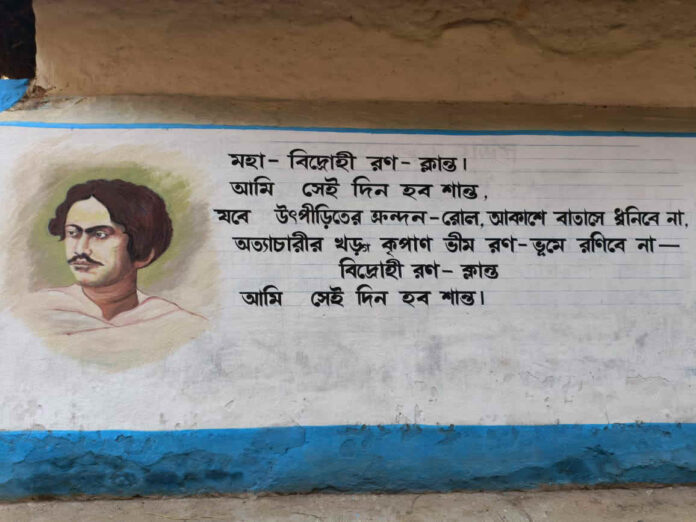 মহা- বিদ্রোহী রণ- ক্লান্ত।
আমি সেই দিন হব শান্ত,
যবে উৎপীড়িতের ক্রন্দন-রোল, আকাশে বাতাসে ধ্বনিবে না,
অত্যাচারীর খড়্গ কৃপাণ ভীম রণ-ভূমে রণিবে না—
বিদ্রোহী রণ- ক্লান্ত
আমি সেই দিন হব শান্ত।